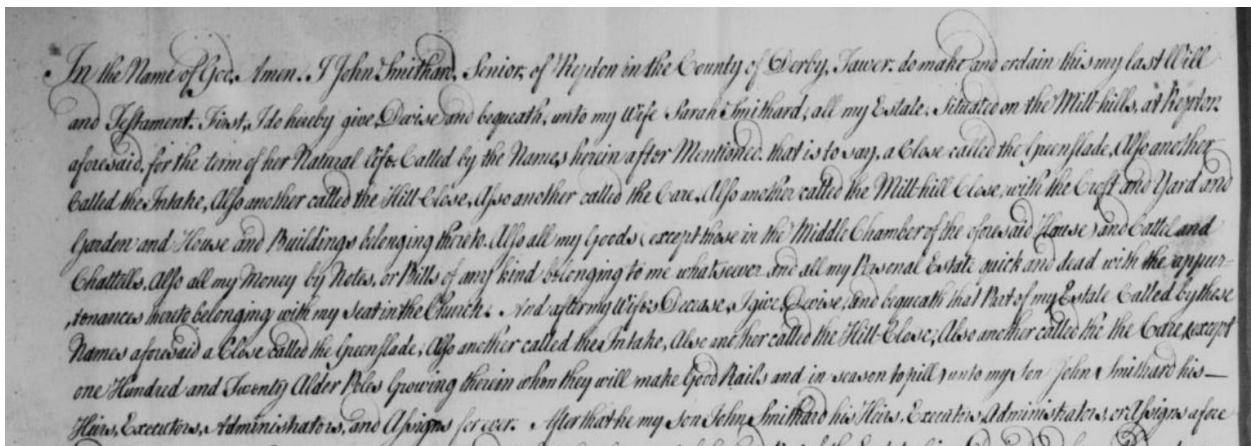 In the Name of God, Amen. I John Smithard, Senior, of Repton in the County of Derby, Tawer, do make and ordain this my last Will
and Testament. First, I do hereby give, Devise and bequeath, unto my Wife Sarah Smithard, all my Estate, Situate on the Mill-hills, at Repton
aforesaid, for the term of her Natural life. Called by the Names, herein after Mentioned, that is to say, a Close called the Greenslade, Also another
Called the Intake, Also another called the Hill-Close, Also another called the Care, Also another called the Mill-hill Close, with the Croft and Yard and
Garden and House and Buildings belonging thereto. Also all my Goods (except those in the Middle Chamber of the aforesaid House) and Cattel and
Chattells, Also all my Money by Notes, or Bills of any kind belonging to me whatsoever and all my Personal Estate quick and dead with the appur-
tenances thereto belonging with my seat in the Church. And after my Wife's Decease, I give, Devise, and bequeath that Part of my Estate Called by these
Names aforesaid a Close called the Greenslade, Also another called the Intake, Also another called the Hill-Close, Also another called the the Care, except
one Hundred and Twenty Alder Poles Growing therein when they will make Good Rails and in season to pill, unto my Son John Smithard his
Heirs, Executors, Administrators, and Assigns for ever. After that he my Son John Smithard his Heirs, Executors, Administrators, or Assigns afore